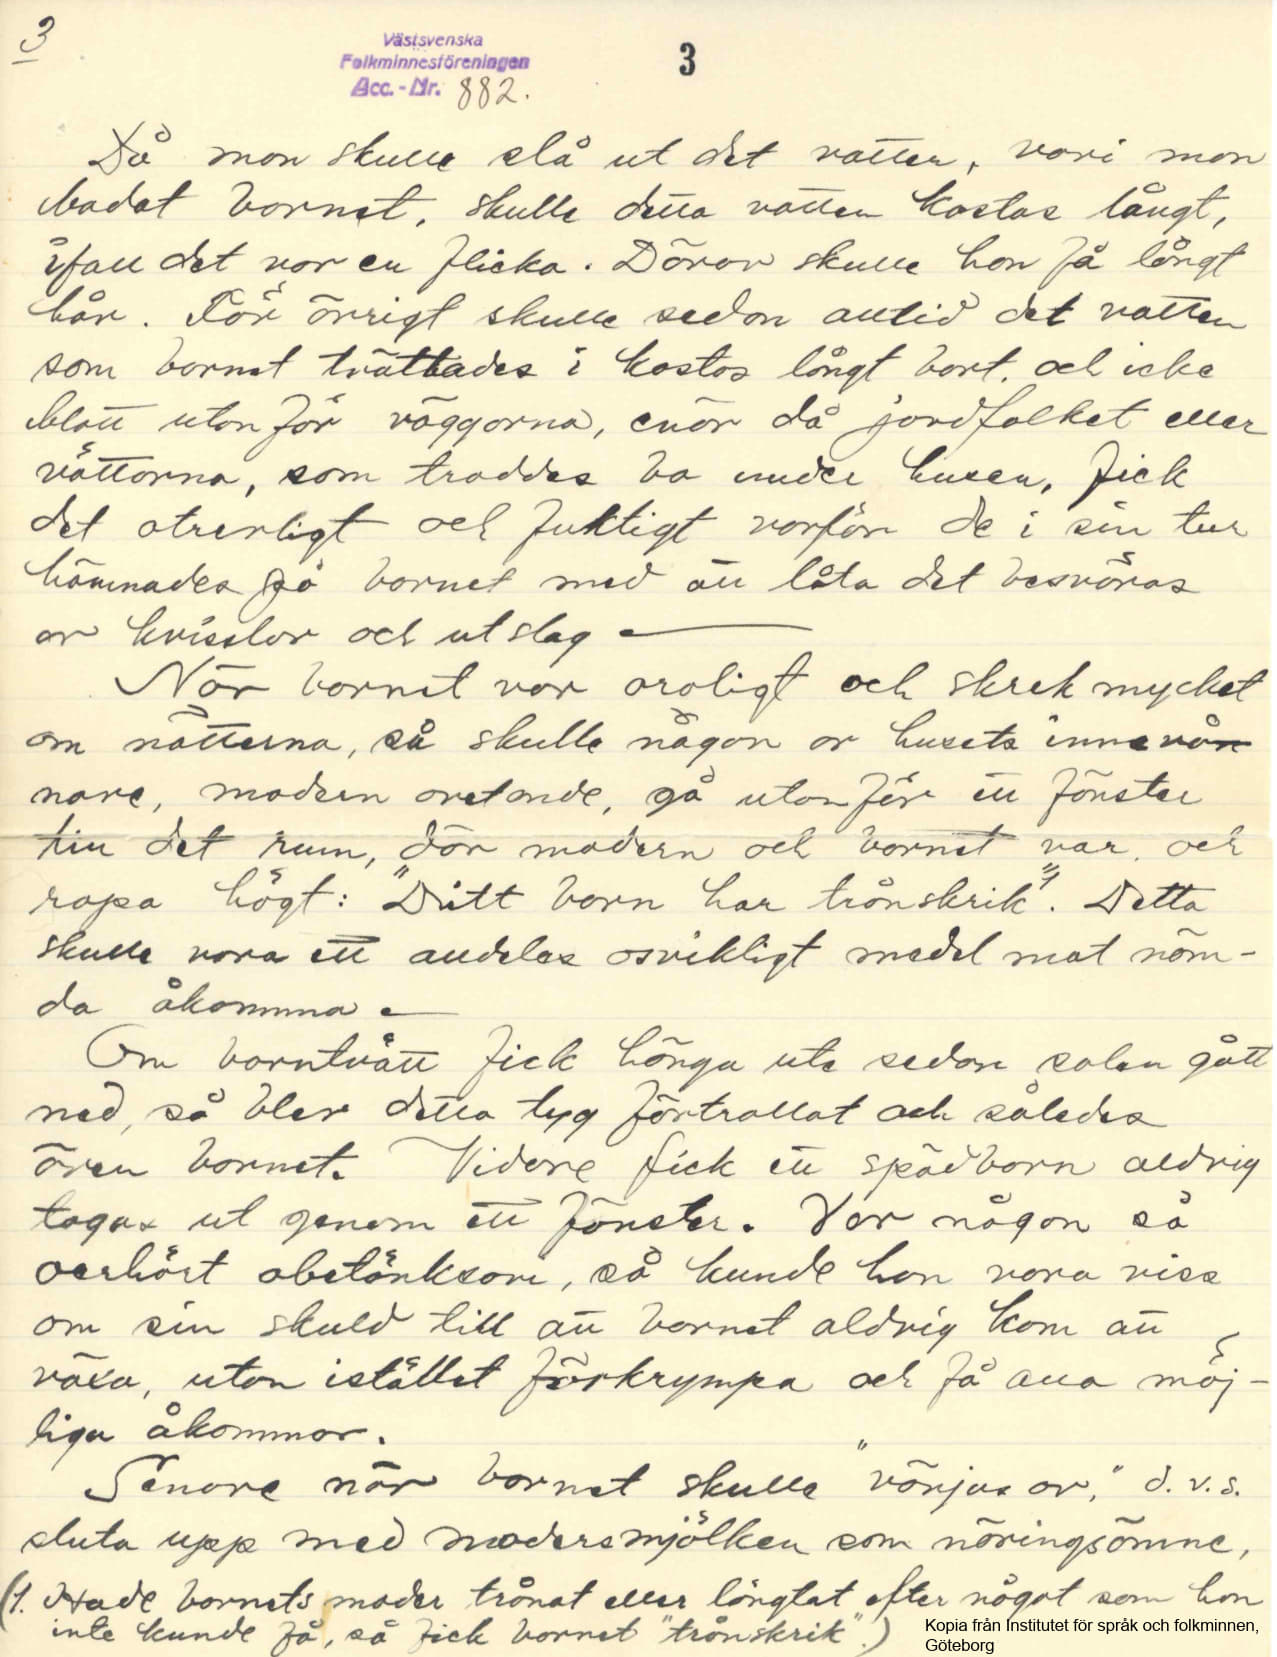 3
Västsvenska
Folkminnesföreningen
Acc.-Nr. 882.
3
Då man skulle slå ut det vatten, vari man
badat barnet, skulle detta vatten kastas långt,
ifall det var en flicka. Därav skulle hon få långt
hår. För övrigt skulle sedan alltid det vatten
som barnet tvättades i kastas långt bort, och icke
blott utanför väggarna, enär då jordfolket eller
vättarna, som troddes bo under husen, fick
det otrevligt och fuktigt varför de i sin tur
hämnades på barnet med att låta det besväras
av kvisslor och utslag —
När barnet var oroligt och skrek mycket
om nätterna, så skulle någon av husets innevån
nare, modern oretande, gå utanför ett fönster
till det rum, där modern och barnet var, och
ropa högt: "Ditt barn har trånskrik"1. Detta
skulle vara ett alldeles osvikligt medel mot näm-
da åkomma —
Om barntvätt fick hänga ute sedan solen gått
ned, så blev detta tyg förtrollat och således
även barnet. Vidare fick ett spädbarn aldrig
tagas ut genom ett fönster. Var någon så
oerhört obetänksam, så kunde han vara viss
om sin skuld till att barnet aldrig kom att
växa, utan istället förkrympa och få alla möj-
liga åkommor.
Senare när barnet skulle "vänjas av," d.v.s.
sluta upp med modersmjölken som näringsämne,
(1. Hade barnets moder trånat eller längtat efter något som hon
inte kunde få, så fick barnet "trånskrik".)
Kopia från Institutet för språk och folkminnen,
Göteborg